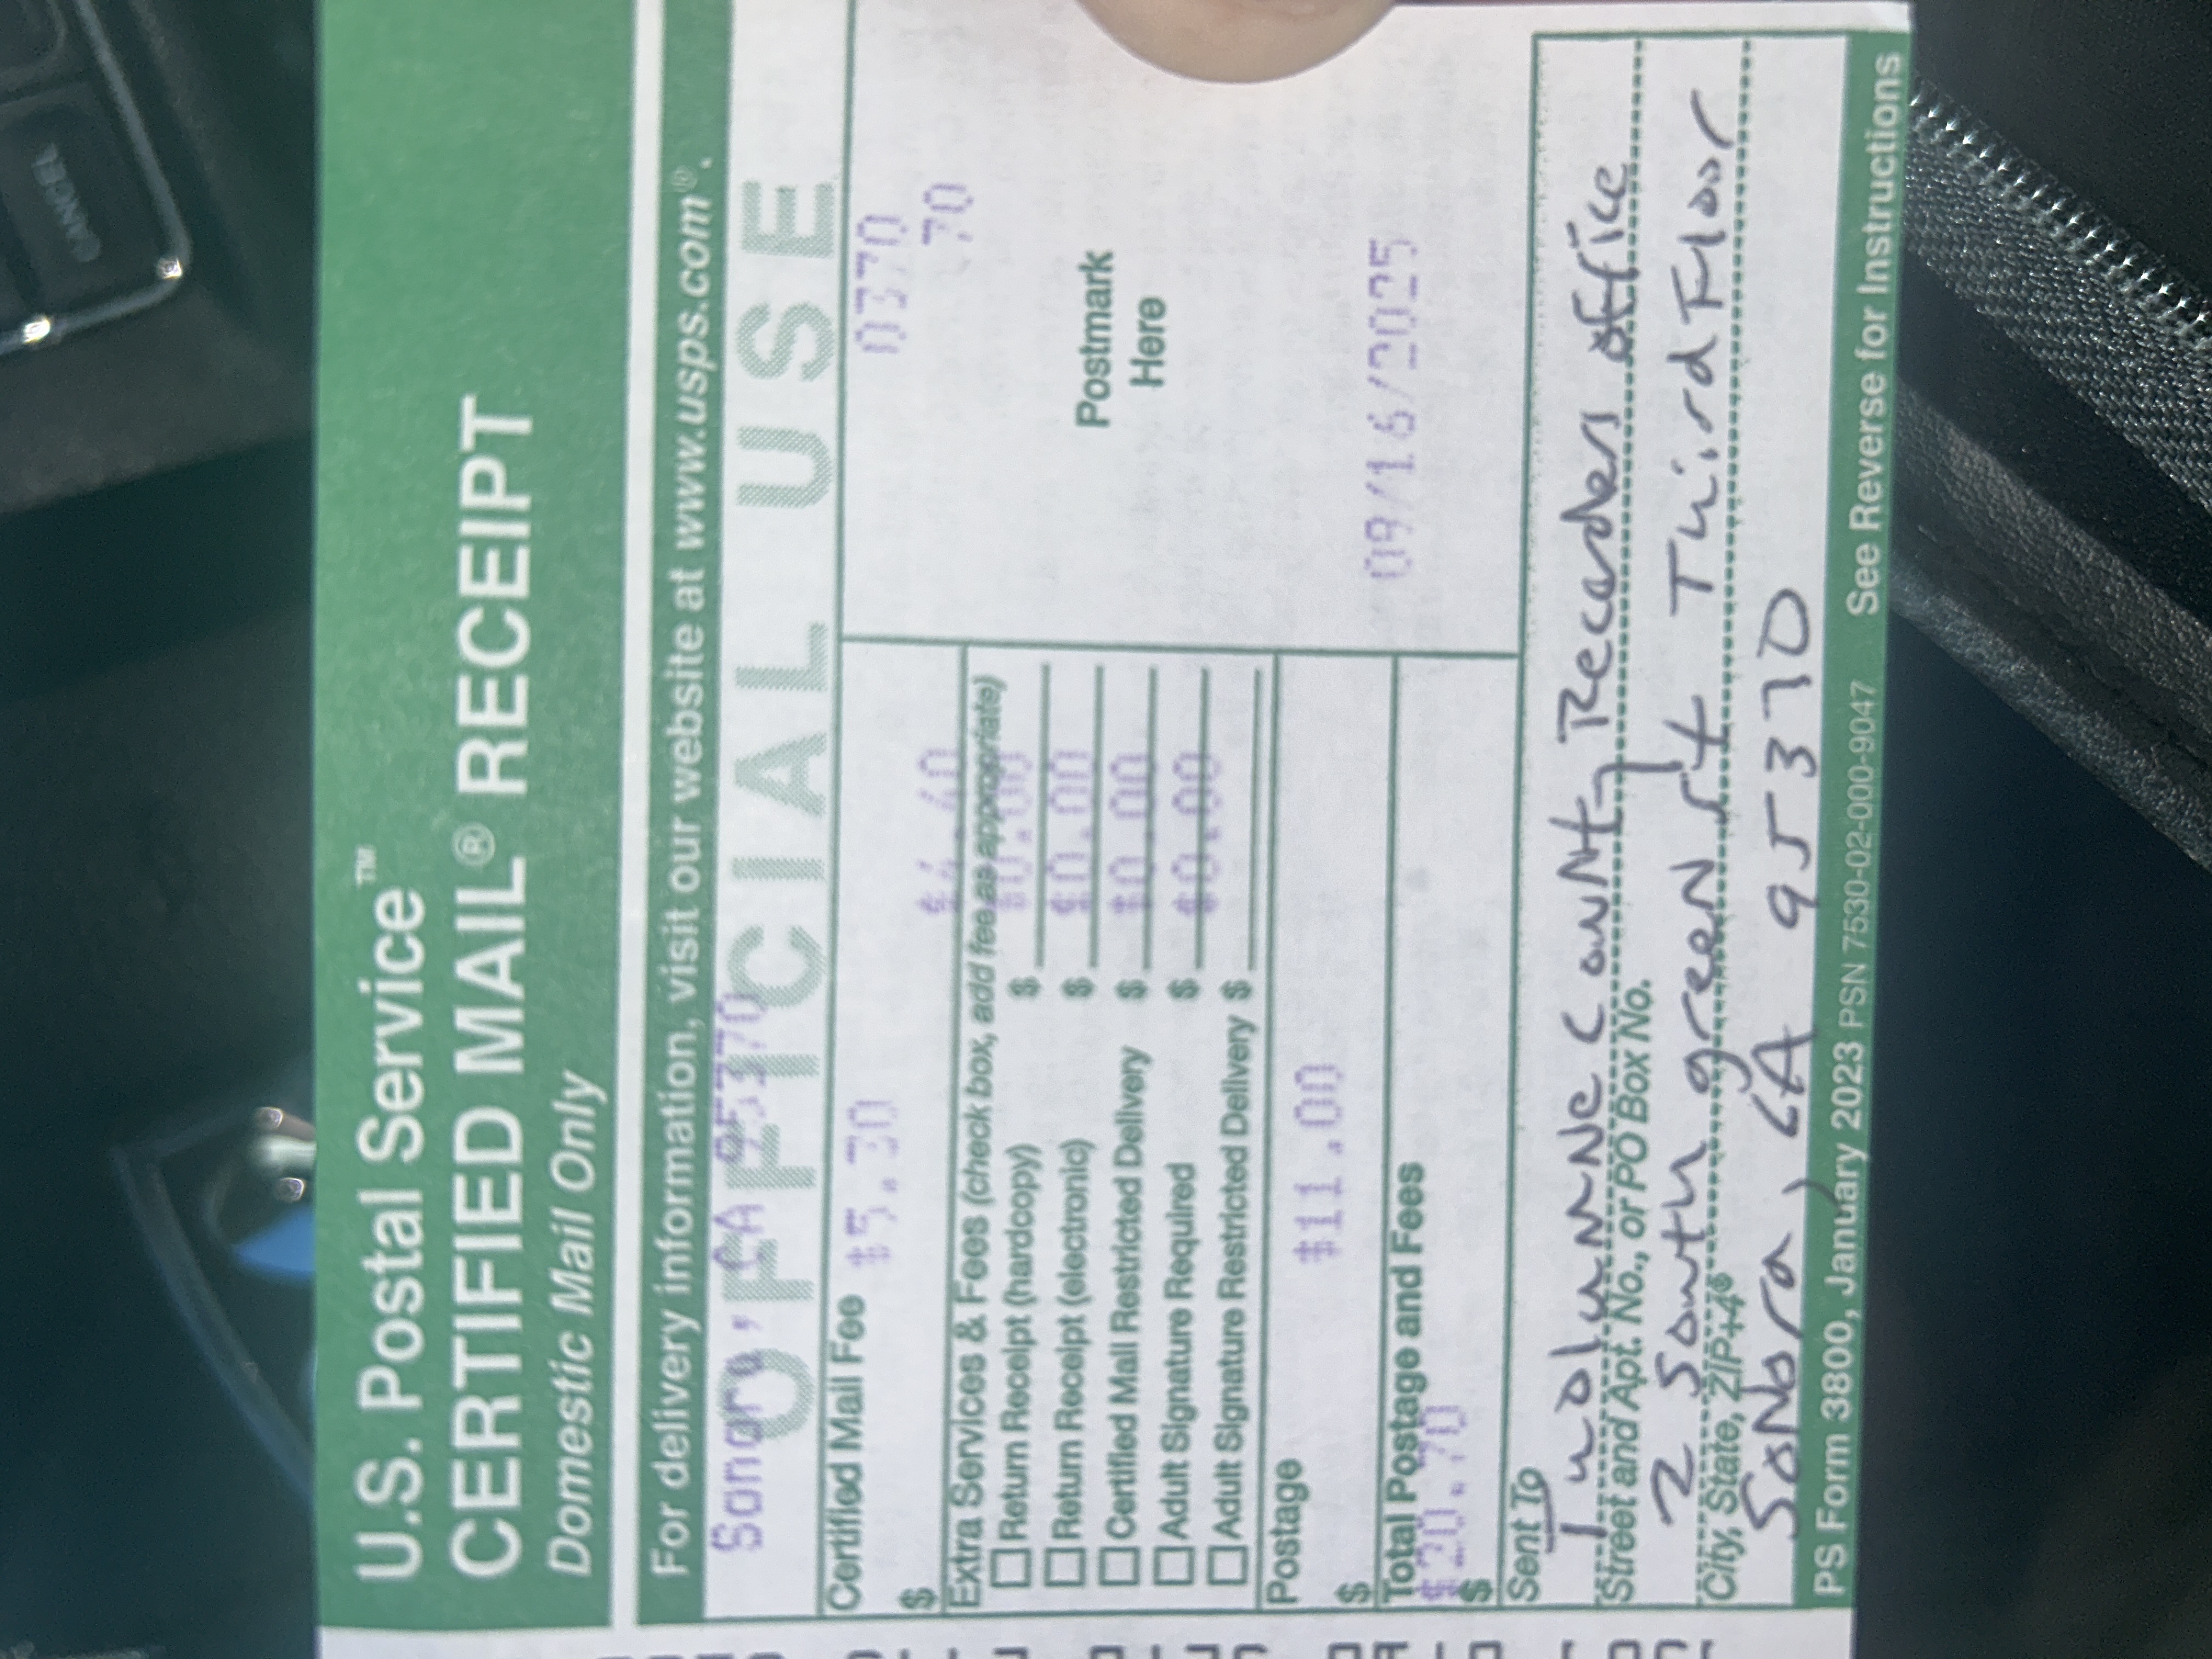 CANCEL
U.S. Postal Service™
CERTIFIED MAIL® RECEIPT
Domestic Mail Only
For delivery information, visit our website at www.usps.com®.
Sonora, CA 95370
OFFICIAL USE
Certified Mail Fee $5.30
$
$4.40
Extra Services & Fees (check box, add fee as appropriate)
Return Receipt (hardcopy) $ $0.00
Return Receipt (electronic) $ $0.00
Certified Mail Restricted Delivery $ $0.00
Adult Signature Required $ $0.00
Adult Signature Restricted Delivery $
Postage
$11.00
$
Total Postage and Fees
$20.70
$
0370
70
Postmark
Here
09/16/2025
Sent To
Tuolumne County Recorders office
Street and Apt. No., or PO Box No.
2 South green st Third Floor
City, State, ZIP+4®
Sonora, CA 95370
PS Form 3800, January 2023 PSN 7530-02-000-9047 See Reverse for Instructions